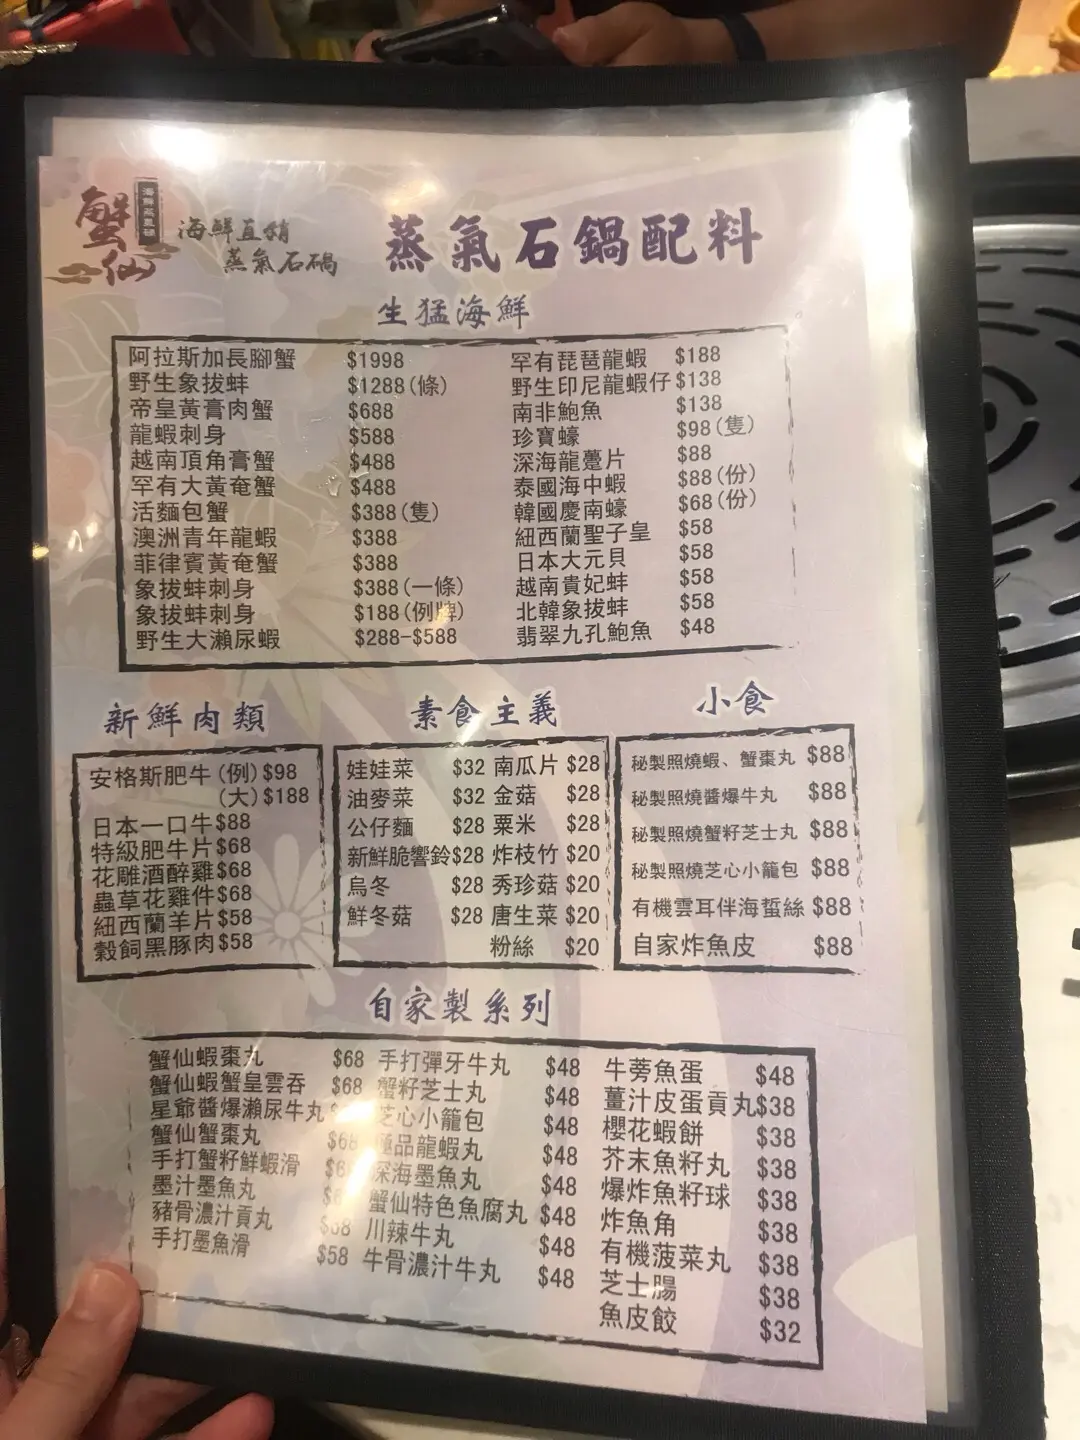 蟹仙
海鮮直銷
蒸氣石鍋
蒸氣石鍋配料
生猛海鮮
阿拉斯加長腳蟹 $1998
野生象拔蚌 $1288(條)
帝皇黃膏肉蟹 $688
龍蝦刺身 $588
越南頂角膏蟹 $488
罕有大黃奄蟹 $488
活麵包蟹 $388(隻)
澳洲青年龍蝦 $388
菲律賓黃奄蟹 $388
象拔蚌刺身 $388(一條)
象拔蚌刺身 $188(例牌)
野生大瀨尿蝦 $288-$588
罕有琵琶龍蝦 $188
野生印尼龍蝦仔 $138
南非鮑魚 $138
珍寶蠔 $98(隻)
深海龍躉片 $88
泰國海中蝦 $88(份)
韓國慶南蠔 $68(份)
紐西蘭聖子皇 $58
日本大元貝 $58
越南貴妃蚌 $58
北韓象拔蚌 $58
翡翠九孔鮑魚 $48
新鮮肉類
安格斯肥牛(例)$98
(大)$188
日本一口牛$88
特級肥牛片$68
花雕酒醉雞$68
蟲草花雞件$68
紐西蘭羊片$58
穀飼黑豚肉$58
素食主義
娃娃菜 $32
油麥菜 $32
公仔麵 $28
新鮮脆響鈴$28
烏冬 $28
鮮冬菇 $28
南瓜片 $28
金菇 $28
粟米 $28
炸枝竹 $20
秀珍菇 $20
唐生菜 $20
粉絲 $20
小食
秘製照燒蝦、蟹棗丸 $88
秘製照燒醬爆牛丸 $88
秘製照燒蟹籽芝士丸 $88
秘製照燒芝心小籠包 $88
有機雲耳伴海蜇絲 $88
自家炸魚皮 $88
自家製系列
蟹仙蝦棗丸 $68
蟹仙蝦蟹皇雲吞 $68
星爺醬爆瀨尿牛丸
蟹仙蟹棗丸 $68
手打蟹籽鮮蝦滑
墨汁墨魚丸
豬骨濃汁貢丸
手打墨魚滑 $58
手打彈牙牛丸 $48
蟹籽芝士丸 $48
芝心小籠包 $48
極品龍蝦丸 $48
深海墨魚丸 $48
蟹仙特色魚腐丸 $48
川辣牛丸 $48
牛骨濃汁牛丸 $48
牛蒡魚蛋 $48
薑汁皮蛋貢丸$38
櫻花蝦餅 $38
芥末魚籽丸 $38
爆炸魚籽球 $38
炸魚角 $38
有機菠菜丸 $38
芝士腸 $38
魚皮餃 $32